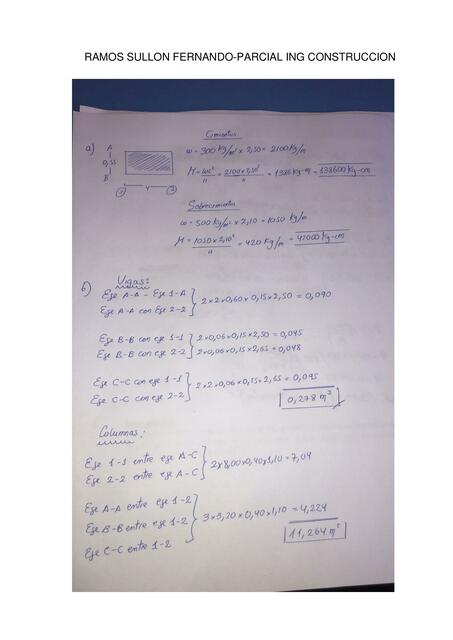 RAMOS SULLON FERNANDO-PARCIAL ING CONSTRUCCION
Cimientos
a) A
0,55
B
4
w = 300 kg/m² x 2,50 = 2100 kg/m
M = wc² / 11 = 2100 x 2,50² / 11 = 1386 kg-m = 138600 kg-cm
Sobrecimientos
w = 500 kg/m² x 2,10 = 1050 kg/m
M = 1050 x 2,10² / 11 = 420 kg/m = 42000 kg-cm
b) Vigas:
Eje A-A - Eje 1-A
Eje A-A con Eje 2-2 } 2x2x0,60x0,15x2,50 = 0,090
Eje B-B con eje 1-1 } 2x0,06x0,15x2,50 = 0,045
Eje B-B con eje 2-2 } 2x0,06x0,15x2,65 = 0,048
Eje C-C con eje 1-1
Eje C-C con eje 2-2 } 2x2x0,06x0,15x2,65 = 0,095
0,278 m³
Columnas:
Eje 1-1 entre eje A-C
Eje 2-2 entre eje A-C } 2x8,00x0,40x1,10 = 7,04
Eje A-A entre eje 1-2
Eje B-B entre eje 1-2 } 3x3,20x0,40x1,10 = 4,224
Eje C-C entre 1-2
11,264 m³